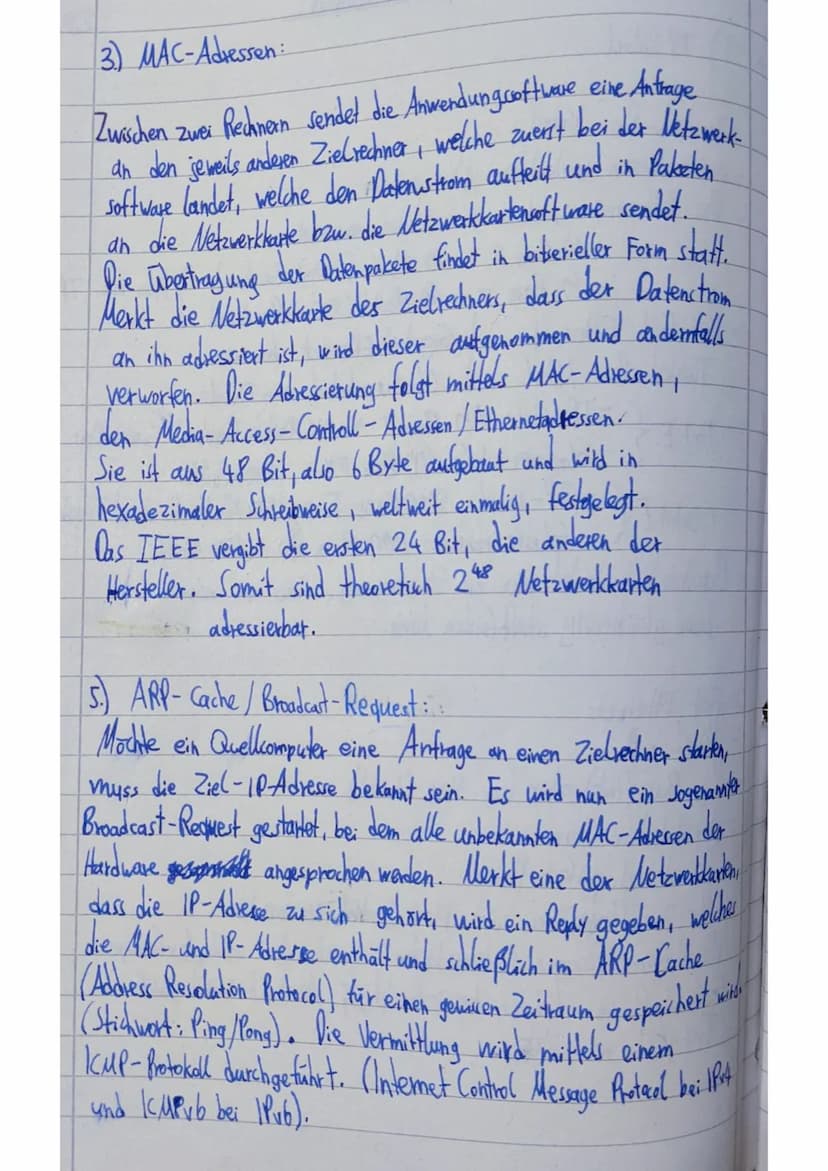 3.) MAC-Adressen:
Zwischen zwei Rechnern sendet die Anwendungssoftware eine Anfrage
an den jeweils anderen Zielrechner, welche zuerst bei der Netzwerk-
software landet, welche den Datenstrom aufteilt und in Paketen
an die Netzwerkkarte bzw. die Netzwerkkartensoftware sendet.
Die Übertragung der Datenpakete findet in bitserieller Form statt.
Merkt die Netzwerkkarte des Zielrechners, dass der Datenstrom
an ihn adressiert ist, wird dieser aufgenommen und andernfalls
verworfen. Die Adressierung folgt mittels MAC-Adressen,
den Media-Access-Controll-Adressen/Ethernetadressen.
Sie ist aus 48 Bit, also 6 Byte aufgebaut und wird in
hexadezimaler Schreibweise, weltweit einmalig, festgelegt.
Das IEEE vergibt die ersten 24 Bit, die anderen der
Hersteller. Somit sind theoretisch 2^48 Netzwerkkarten
adressierbar.
5.) ARP-Cache/Broadcast-Request:
Möchte ein Quellcomputer eine Anfrage an einen Zielrechner starten,
muss die Ziel-IP-Adresse bekannt sein. Es wird nun ein sogenannter
Broadcast-Request gestartet, bei dem alle unbekannten MAC-Adressen der
Hardware angesprochen werden. Merkt eine der Netzwerkkarten,
dass die IP-Adresse zu sich gehört, wird ein Reply gegeben, welches
die MAC- und IP-Adresse enthält und schließlich im ARP-Cache
(Address Resolution Protocol) für einen gewissen Zeitraum gespeichert wird.
(Stichwort: Ping/Pong). Die Vermittlung wird mittels einem
ICMP-Protokoll durchgeführt. (Internet Control Message Protocol bei IPv4
und ICMPv6 bei IPv6).